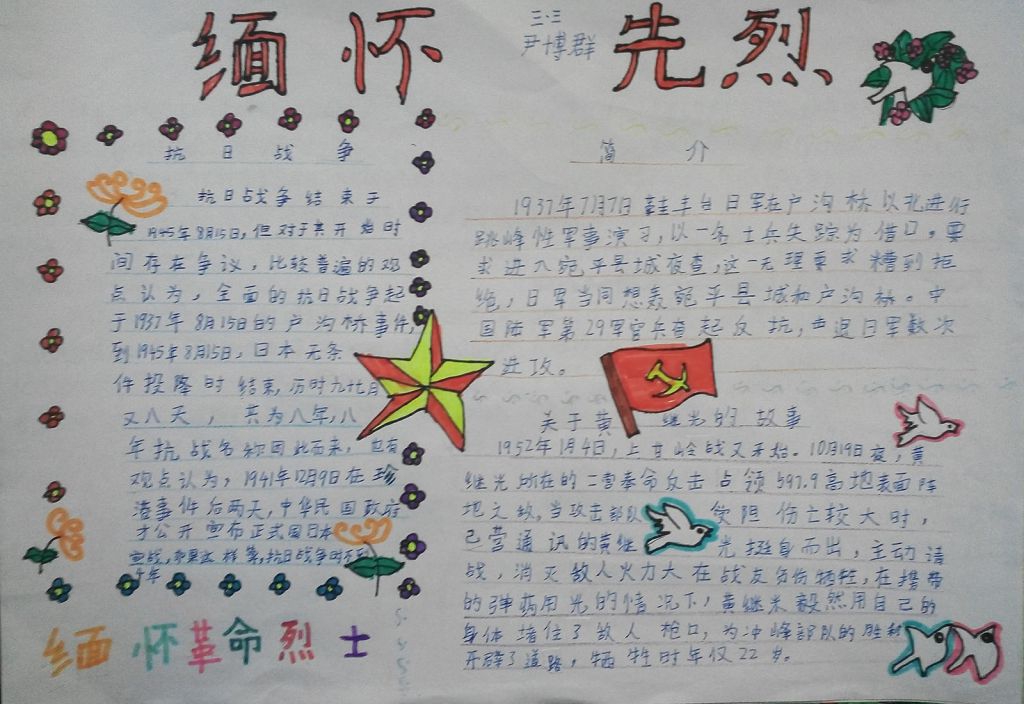 缅怀先烈
三.三
尹博群
抗日战争
抗日战争结束于
1945年8月15日,但对于其开始时
间存在争议,比较普遍的观
点认为,全面的抗日战争起
于1937年8月15日的户沟桥事件,
到1945年8月15日,日本无条
件投降时结束,历时九七月
又八天,共为八年,八
年抗战名称因此而来,也有
观点认为,1941年12月9日在珍
港事件后两天,中华民国政府
才公开宣布正式国日本
宣战,如果这样算,抗日战争
年
缅怀革命烈士
简介
1937年7月7日丰台日军在户沟桥以北进行
挑峰性军事演习,以一名士兵失踪为借口。要
求进入宛平县城夜查,这一无理要求糟到拒
绝,日军当同想轰宛平县城和户沟桥。中
国陆军第29军官兵奋起反抗,击退日军数次
进攻。
关于黄继光的故事
1952年1月4日,上甘岭战又开始。10月19日夜,黄
继光所在的二营奉命反击占领597.9高地表面阵
地之敌,当攻击部队受阻伤亡较大时,
已营通讯的黄继光挺身而出,主动请
战,消灭敌人火力大在战友负伤牺牲,在携带
的弹药用光的情况下,黄继光毅然用自己的
身体堵住了敌人枪口,为冲峰部队的胜利
开辟了道路,牺牲时年仅22岁。